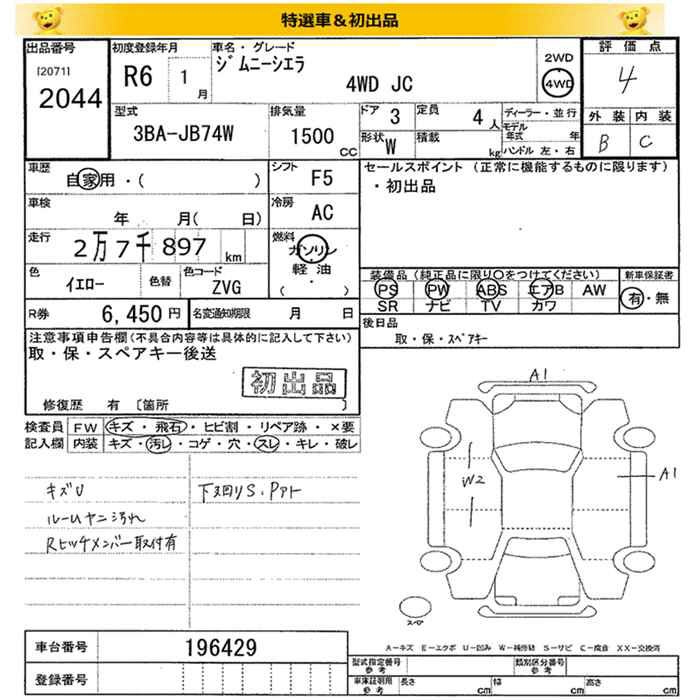 特選車＆初出品
出品番号 初度登録年月 車名・グレード 評価点
[2071] R6 1月 ジムニーシエラ 2WD 4
2044 4WD JC 4WD
型式 排気量 ドア 3 定員 4人 ディーラー・並行 外装 内装
3BA-JB74W 1500CC 形状 W 積載 kg モデル年式 年 B C
ハンドル 左・右
車歴 シフト セールスポイント (正常に機能するものに限ります)
自家用・( ) F5 ・初出品
車検 冷房
年 月( 日) AC
走行 燃料
2万7千897km ガソリン
色 色替 色コード 軽油
イエロー ZVG ( ・ )
装備品(純正品に限り○をつけてください) 新車保証書
PS PW ABS エアB AW 有・無
SR ナビ TV カワ
R券 6,450円 名変通知期限 月 日
後日品
取・保・スペアキー
注意事項申告欄(不具合内容等は具体的に記入して下さい)
取・保・スペアキー後送
初出品
修復歴 有 〔箇所 〕
検査員 FW キズ・飛石・ヒビ割・リペア跡・×要
記入欄 内装 キズ・汚レ・コゲ・穴・スレ・キレ・破レ
キズU 下廻りS・Pアト
ルームヤニ汚れ
Rヒッチメンバー取付有
A1
W2
A1
スペア
A-キズ E-エクボ U-凹み W-補修跡 S-サビ C-腐食 XX-交換済
車台番号 196429
登録番号
型式指定番号 参考 類別区分番号 参考
車庫証明用 参考 長さ cm 幅 cm 高さ cm